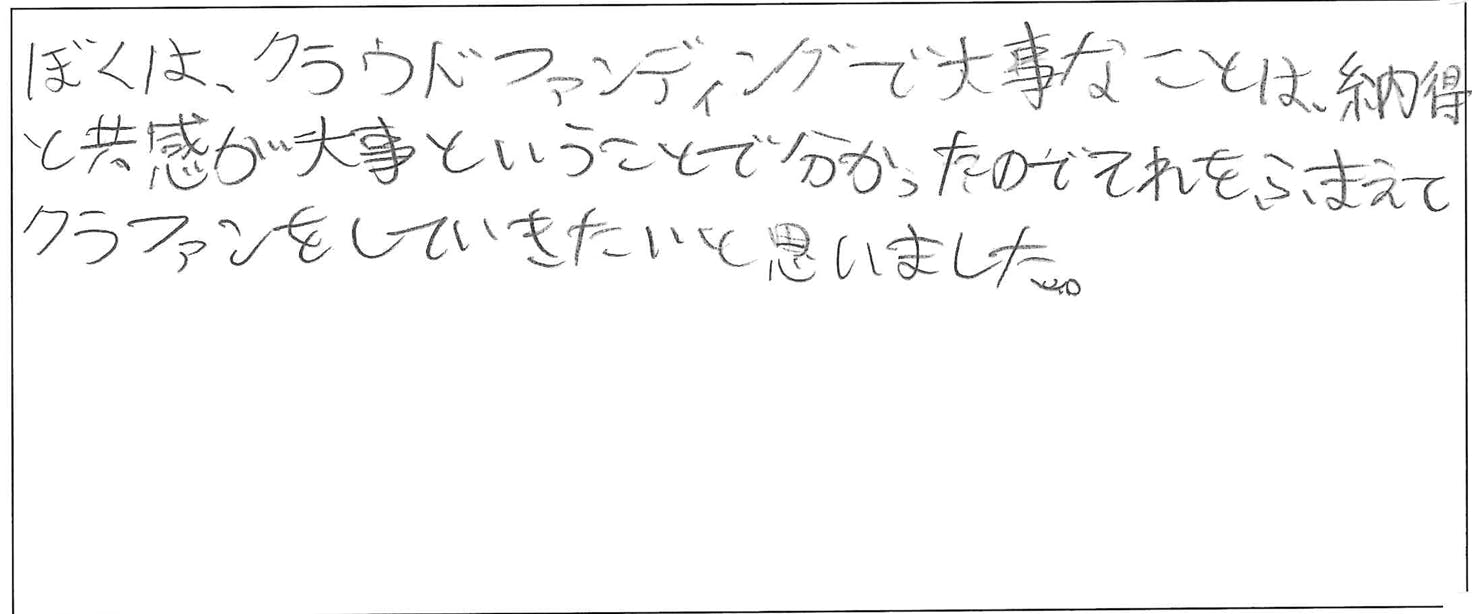 ぼくは、クラウドファンディングで大事なことは、納得
と共感が大事ということで分かったのでそれをふまえて
クラファンをしていきたいと思いました。